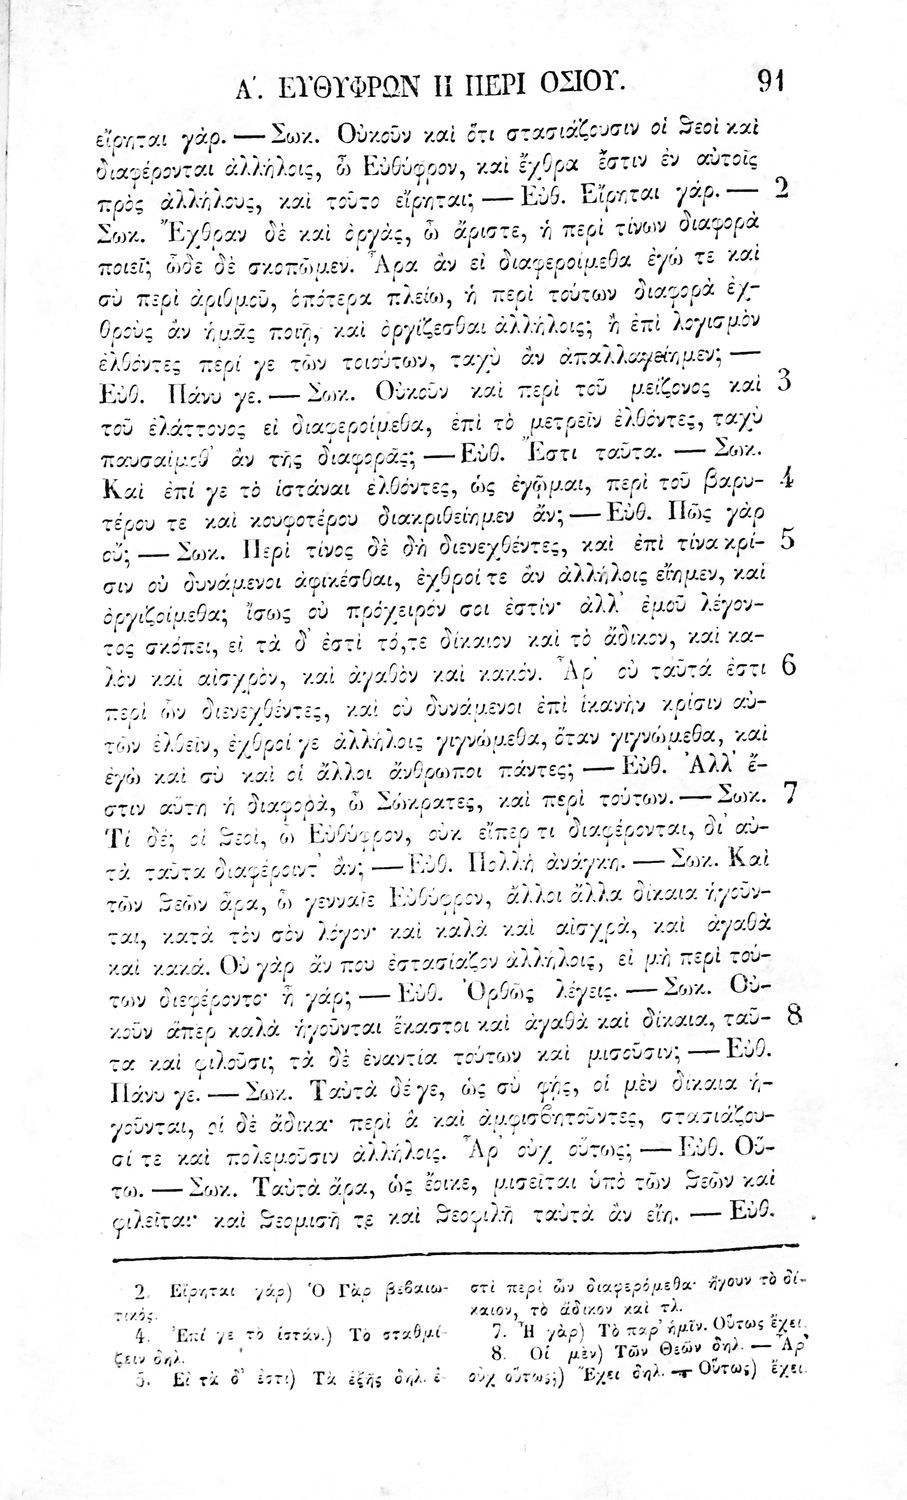 Α΄. ΕΥΘΥΦΡΩΝ Η ΠΕΡΙ ΟΣΙΟΥ. 91
εἴρηται γάρ. — Σωκ. Οὐκοῦν καὶ ὅτι στασιάζουσιν οἱ ϑεοὶ καὶ
διαφέρονται ἀλλήλοις, ὦ Εὐθύφρον, καὶ ἔχθρα ἔστιν ἐν αὐτοῖς
πρὸς ἀλλήλους, καὶ τοῦτο εἴρηται; — Εὐθ. Εἴρηται γάρ. — 2
Σωκ. Ἔχθραν δὲ καὶ ὀργὰς, ὦ ἄριστε, ἡ περὶ τίνων διαφορὰ
ποιεῖ; ὧδε δὲ σκοπῶμεν. Ἆρα ἂν εἰ διαφεροίμεθα ἐγώ τε καὶ
σὺ περὶ ἀριθμοῦ, ὁπότερα πλείω, ἡ περὶ τούτων διαφορὰ ἐχ-
θροὺς ἂν ἡμᾶς ποιῇ, καὶ ὀργίζεσθαι ἀλλήλοις; ἢ ἐπὶ λογισμὸν
ἐλθόντες περί γε τῶν τοιούτων, ταχὺ ἂν ἀπαλλαγείημεν; —
Εὐθ. Πάνυ γε. — Σωκ. Οὐκοῦν καὶ περὶ τοῦ μείζονος καὶ 3
τοῦ ἐλάττονος εἰ διαφεροίμεθα, ἐπὶ τὸ μετρεῖν ἐλθόντες, ταχὺ
παυσαίμεθ' ἂν τῆς διαφορᾶς; — Εὐθ. Ἔστι ταῦτα. — Σωκ.
Καὶ ἐπί γε τὸ ἱστάναι ἐλθόντες, ὡς ἐγᾦμαι, περὶ τοῦ βαρυ- 4
τέρου τε καὶ κουφοτέρου διακριθείημεν ἄν; — Εὐθ. Πῶς γὰρ
οὔ; — Σωκ. Περὶ τίνος δὲ δὴ διενεχθέντες, καὶ ἐπὶ τίνα κρί- 5
σιν οὐ δυνάμενοι ἀφικέσθαι, ἐχθροί τε ἂν ἀλλήλοις εἴημεν, καὶ
ὀργιζοίμεθα; ἴσως οὐ πρόχειρόν σοι ἐστίν· ἀλλ' ἐμοῦ λέγον-
τος σκόπει, εἰ τὰ δ' ἐστὶ τό,τε δίκαιον καὶ τὸ ἄδικον, καὶ κα-
λὸν καὶ αἰσχρὸν, καὶ ἀγαθὸν καὶ κακόν. Ἆρ' οὐ ταῦτά ἐστι 6
περὶ ὧν διενεχθέντες, καὶ οὐ δυνάμενοι ἐπὶ ἱκανὴν κρίσιν αὐ-
τῶν ἐλθεῖν, ἐχθροί γε ἀλλήλοις γιγνώμεθα, ὅταν γιγνώμεθα, καὶ
ἐγὼ καὶ σὺ καὶ οἱ ἄλλοι ἄνθρωποι πάντες; — Εὐθ. Ἀλλ' ἔ-
στιν αὕτη ἡ διαφορὰ, ὦ Σώκρατες, καὶ περὶ τούτων. — Σωκ. 7
Τί δέ; οἱ ϑεοὶ, ὦ Εὐθύφρον, οὐκ εἴπερ τι διαφέρονται, δι' αὐ-
τὰ ταῦτα διαφέροιντ' ἄν; — Εὐθ. Πολλὴ ἀνάγκη. — Σωκ. Καὶ
τῶν ϑεῶν ἄρα, ὦ γενναῖε Εὐθύφρον, ἄλλοι ἄλλα δίκαια ἡγοῦν-
ται, κατὰ τὸν σὸν λόγον· καὶ καλὰ καὶ αἰσχρὰ, καὶ ἀγαθὰ
καὶ κακά. Οὐ γὰρ ἄν που ἐστασίαζον ἀλλήλοις, εἰ μὴ περὶ τού-
των διεφέροντο· ἦ γάρ; — Εὐθ. Ὀρθῶς λέγεις. — Σωκ. Οὐ-
κοῦν ἅπερ καλὰ ἡγοῦνται ἕκαστοι καὶ ἀγαθὰ καὶ δίκαια, ταῦ- 8
τα καὶ φιλοῦσι; τὰ δὲ ἐναντία τούτων καὶ μισοῦσιν; — Εὐθ.
Πάνυ γε. — Σωκ. Ταὐτὰ δέ γε, ὡς σὺ φῂς, οἱ μὲν δίκαια ἡ-
γοῦνται, οἱ δὲ ἄδικα· περὶ ἃ καὶ ἀμφισϐητοῦντες, στασιάζου-
σί τε καὶ πολεμοῦσιν ἀλλήλοις. Ἆρ' οὐχ οὕτως; — Εὐθ. Οὕ-
τω. — Σωκ. Ταὐτὰ ἄρα, ὡς ἔοικε, μισεῖται ὑπὸ τῶν ϑεῶν καὶ
φιλεῖται· καὶ ϑεομισῆ τε καὶ ϑεοφιλῆ ταὐτὰ ἂν εἴη. — Εὐθ.
2. Εἴρηται γάρ) Ὁ Γὰρ βεβαιω-
τικός.
4. Ἐπί γε τὸ ἱστάν.) Τὸ σταθμί-
ζειν δηλ.
5. Εἰ τὰ δ' ἐστὶ) Τὰ ἑξῆς δηλ. ἐ-
στὶ περὶ ὧν διαφερόμεθα· ἤγουν τὸ δί-
καιον, τὸ ἄδικον καὶ τλ.
7. Ἦ γὰρ) Τὸ παρ' ἡμῖν. Οὕτως ἔχει.
8. Οἱ μὲν) Τῶν Θεῶν δηλ. — Ἆρ'
οὐχ οὕτως;) Ἔχει δηλ. — Οὕτως) ἔχει.